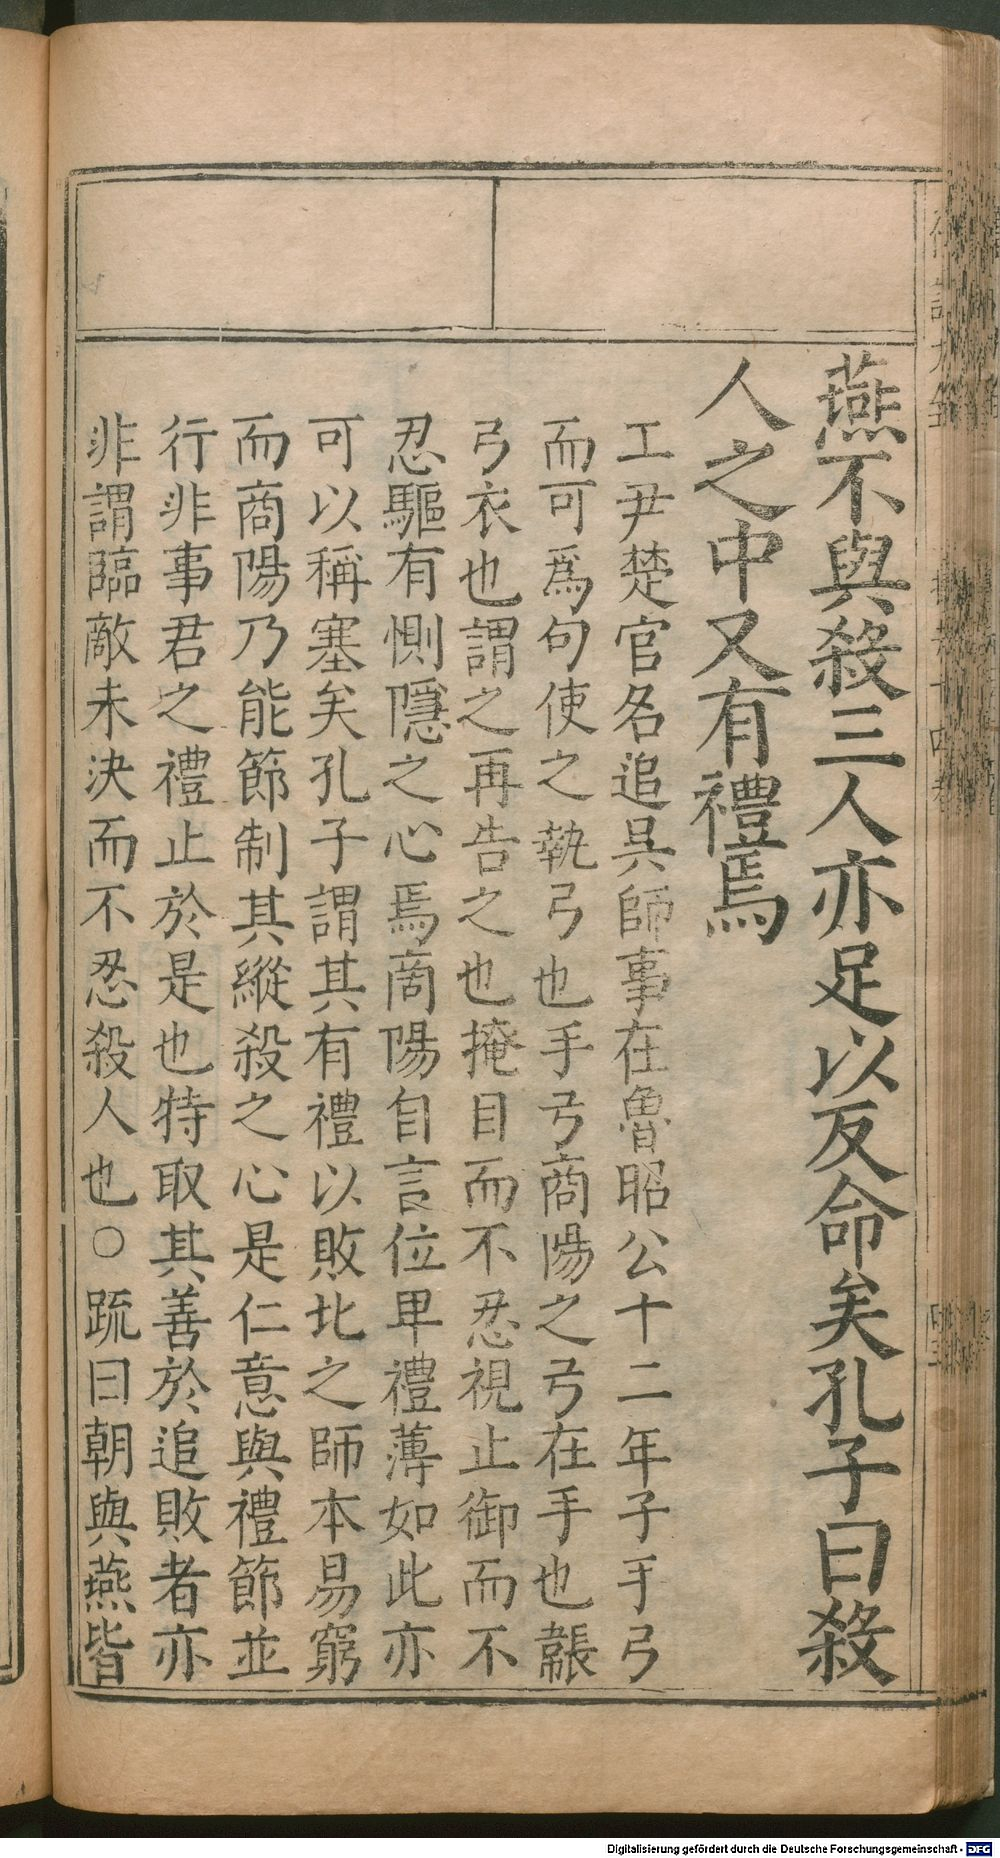 燕不與殺三人亦足以反命矣孔子曰殺
人之中又有禮焉
工尹楚官名追吳師事在魯昭公十二年子手弓
而可爲句使之執弓也手弓商陽之弓在手也韔
弓衣也謂之再告之也掩目而不忍視止御而不
忍驅有惻隱之心焉商陽自言位卑禮薄如此亦
可以稱塞矣孔子謂其有禮以敗北之師本易窮
而商陽乃能節制其縱殺之心是仁意與禮節並
行非事君之禮止於是也特取其善於追敗者亦
非謂臨敵未決而不忍殺人也○疏曰朝與燕皆
Digitalisierung gefördert durch die Deutsche Forschungsgemeinschaft - DFG